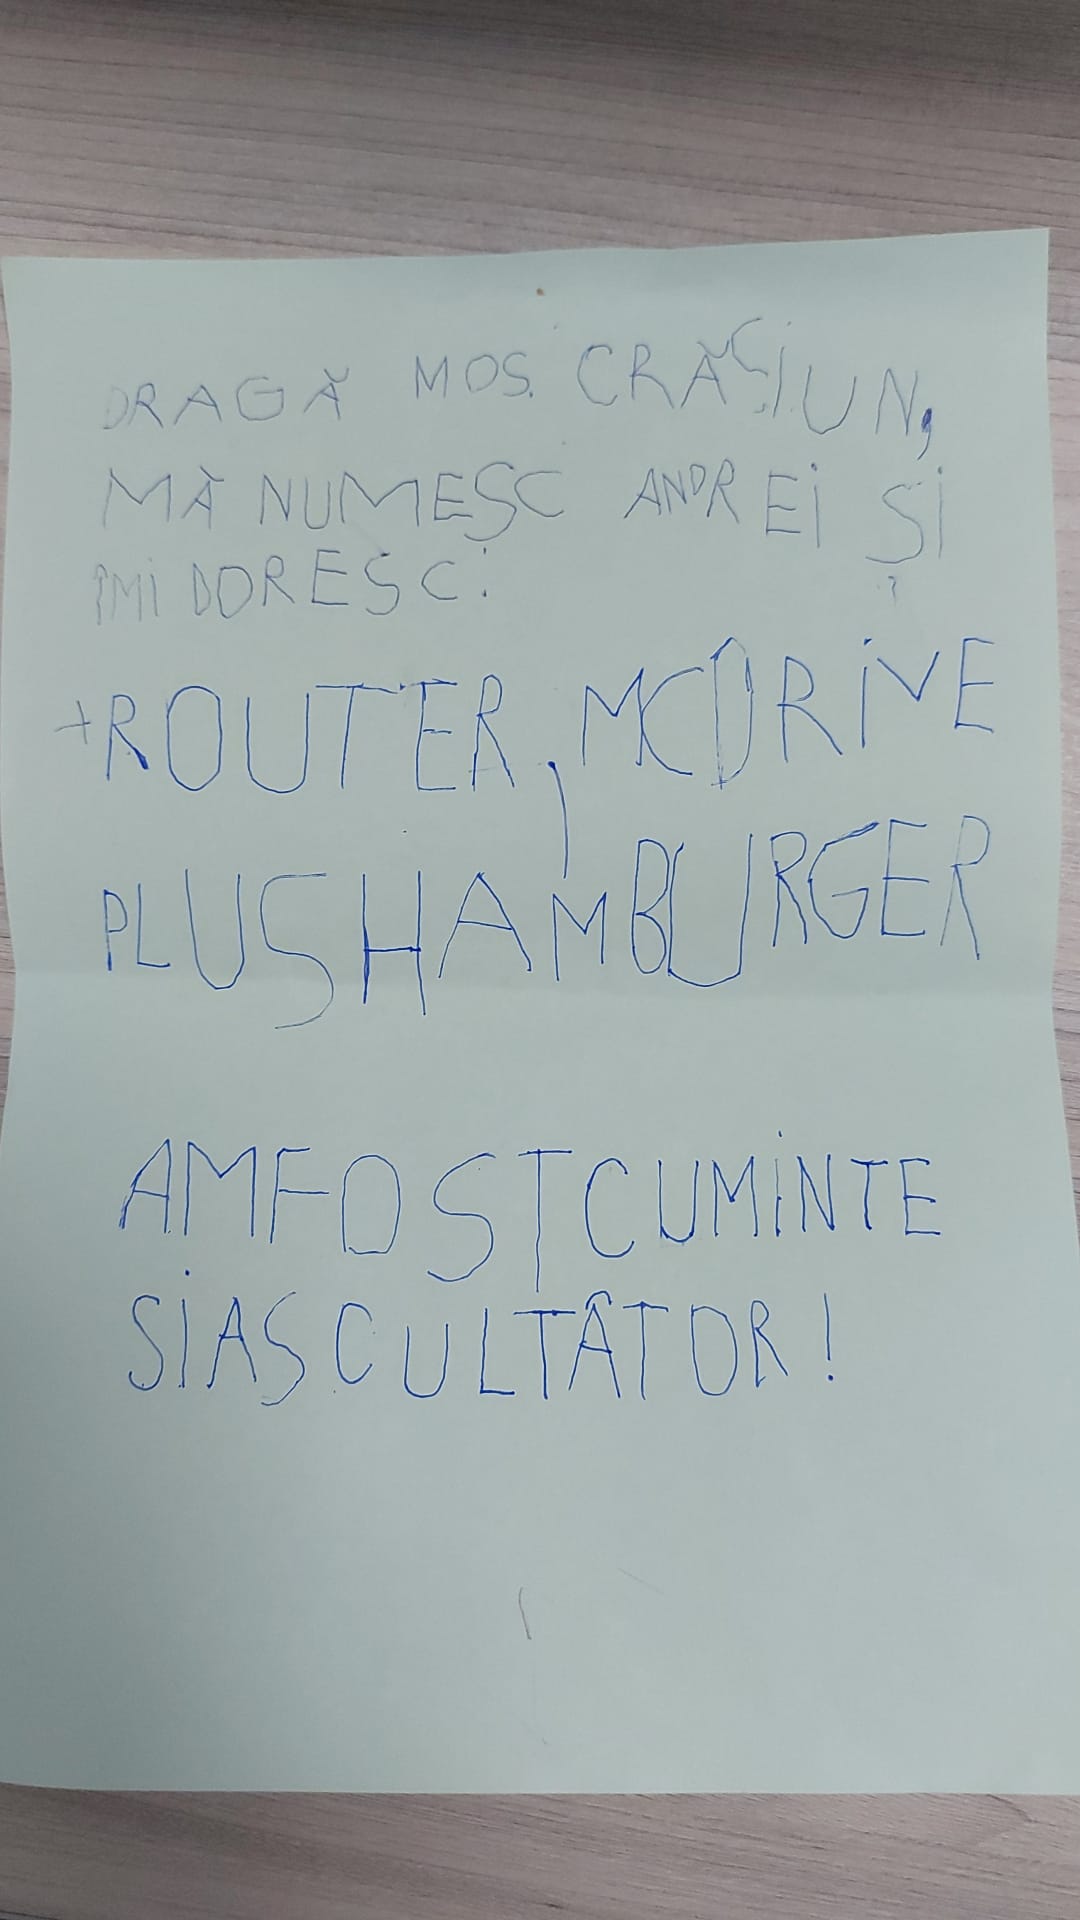 DRAGĂ MOȘ CRĂCIUN,
MĂ NUMESC ANDREI ȘI
ÎMI DORESC:
+ROUTER, MCDRIVE
PLUSHAMBURGER
AMFOSTCUMINTE
SIASCULTÂTOR!